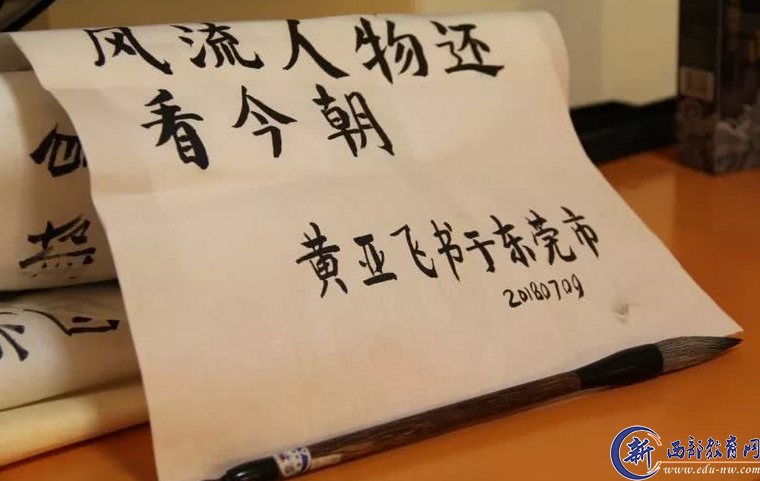 风流人物还
看今朝
黄亚飞书于东莞市
20180709
新西部教育网
www.edu-nw.com